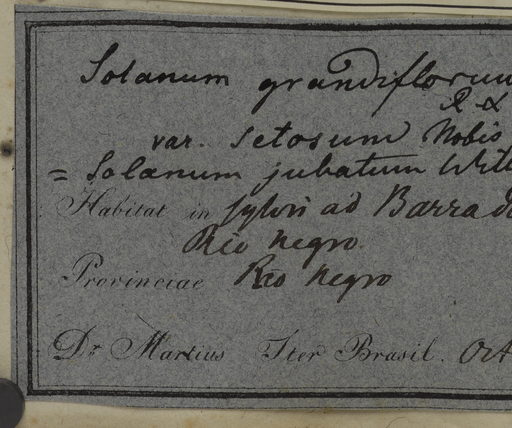 Solanum grandiflorum
R &
var. setosum Nobis
= Solanum jubatum Willd
Habitat in sylvis ad Barra do
Rio negro.
Provinciae Rio Negro
Dr. Martius Iter Brasil. Oct